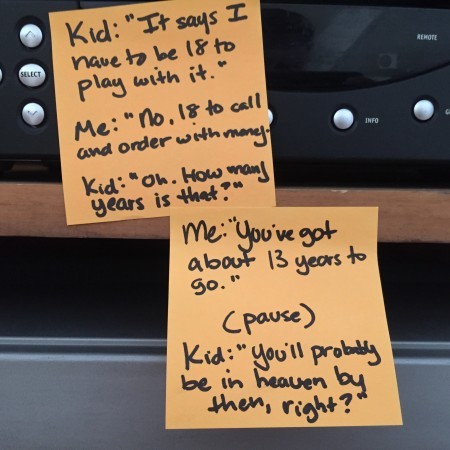 SELECT
REMOTE
INFO
Kid: "It says I
have to be 18 to
play with it."
Me: "No, 18 to call
and order with money.
Kid: "Oh. How many
years is that?"
Me: "You've got
about 13 years to
go."
(pause)
Kid: "You'll probably
be in heaven by
then, right?"